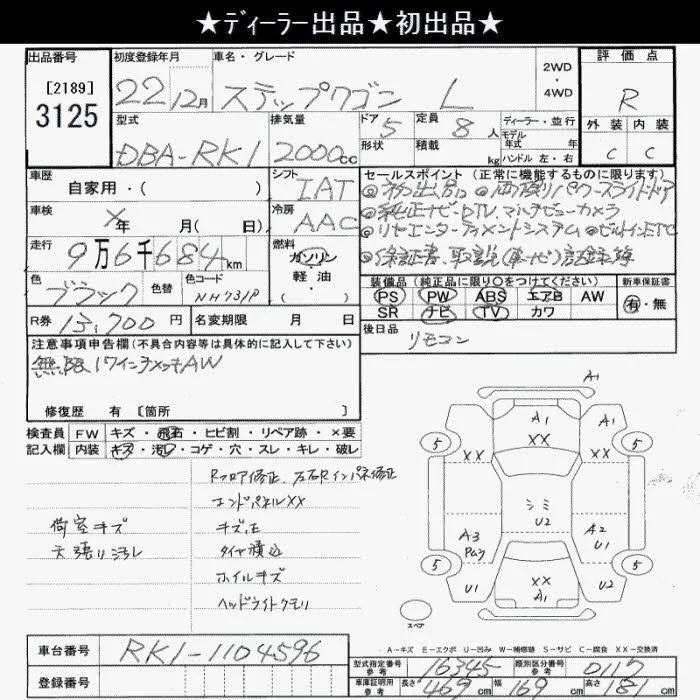 ★ディーラー出品★初出品★
出品番号
[2189]
3125
初度登録年月
22 12月
車名・グレード
ステップワゴン L
2WD
・
4WD
評価点
R
外装 内装
C C
型式
DBA-RK1
排気量
2000cc
ドア
5
形状
定員
8人
積載
kg
ディーラー・並行
モデル
年式 年
ハンドル 左・右
車歴
自家用・( )
シフト
IAT
セールスポイント (正常に機能するものに限ります)
◎初出品 ◎両側パワースライドドア
◎純正ナビ・DTV,マルチビューカメラ
◎リヤエンターテイメントシステム ◎ビルトインETC
◎保証書、取説(車・ナビ)記録簿
車検
×年 月( 日)
冷房
AAC
走行
9万6千684km
燃料
ガソリン
軽・油
・( )
色
ブラック
色替
色コード
NH731P
装備品 (純正品に限り○をつけてください)
PS PW ABS エアB AW
SR ナビ TV カワ
新車保証書
有・無
R券
13,700円
名変期限 月 日
後日品
リモコン
注意事項申告欄(不具合内容等は具体的に記入して下さい)
無限17インチメッキAW
修復歴 有 [箇所 ]
検査員
記入欄
FW キズ・飛石・ヒビ割・リペア跡・×要
内装 キズ・汚れ・コゲ・穴・スレ・キレ・破レ
Rフロア修正、左右Rインパネ修正
エンドパネルXX
荷室キズ
キズ凹
天張り汚れ
タイヤ積込
ホイルキズ
ヘッドライトクモリ
A1
A1
A1
XX
XX
XX
5
5
シミ
U2
A3
Pあり
A2
U1
5
5
U1
XX
A1
U2
スペア
A-キズ E-エクボ U-凹み W-補修跡 S-サビ C-腐食 XX-交換済
車台番号
RK1-1104596
登録番号
型式指定番号
参考
16345
類別区分番号
参考
0117
車庫証明用
参考
長さ 469cm 幅 169cm 高さ 181cm